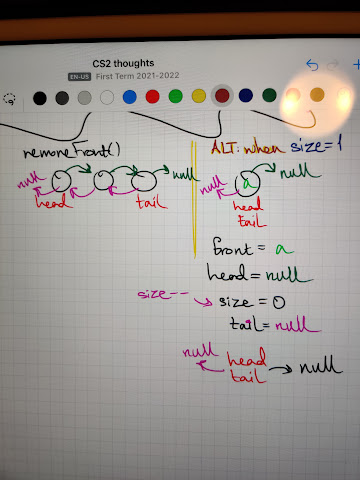 CS2 thoughts
EN-US First Term 2021-2022
removeFront()
null
null
head
tail
ALT: when size=1
null
null
a
head
tail
front = a
head = null
size-- → size = 0
tail = null
null
head → null
tail